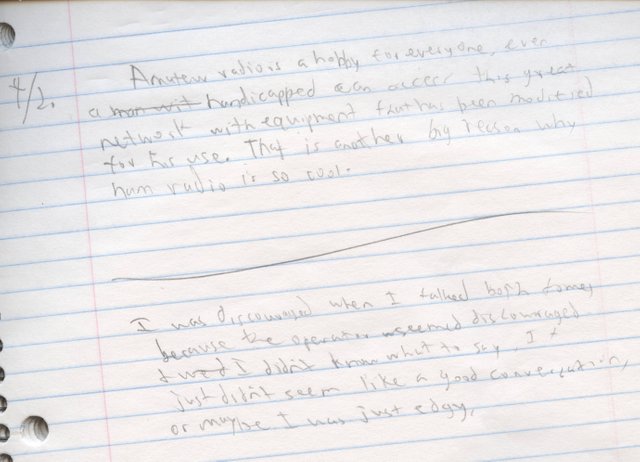 4/2.
Amateur radio is a hobby for everyone, even
a man wit handicapped can access this great
network with equipment that has been modified
for his use. That is another big reason why
ham radio is so cool.
I was discouraged when I talked both times
because the operator seemed discouraged
I didn't know what to say. It
just didn't seem like a good conversation,
or maybe I was just edgy.